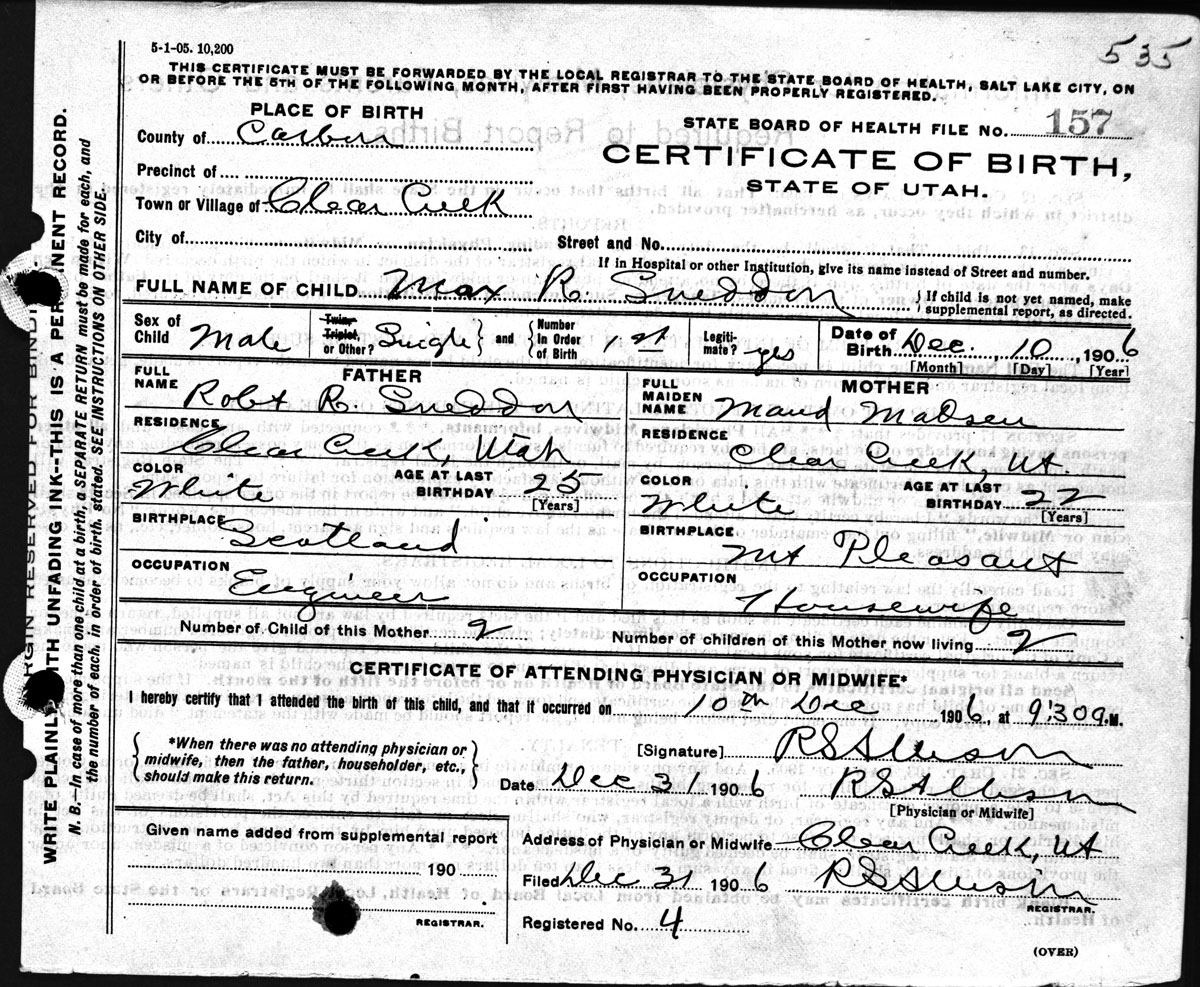 5-1-05. 10,200
535
THIS CERTIFICATE MUST BE FORWARDED BY THE LOCAL REGISTRAR TO THE STATE BOARD OF HEALTH, SALT LAKE CITY, ON
OR BEFORE THE 5TH OF THE FOLLOWING MONTH, AFTER FIRST HAVING BEEN PROPERLY REGISTERED.
PLACE OF BIRTH
County of Carbon
STATE BOARD OF HEALTH FILE No. 157
CERTIFICATE OF BIRTH,
STATE OF UTAH.
Precinct of
Town or Village of Clear Creek
City of Street and No.
If in Hospital or other Institution, give its name instead of Street and number.
FULL NAME OF CHILD Max R. Sneddon { If child is not yet named, make
supplemental report, as directed.
Sex of Child Male Twin, Triplet, or Other? Single } and { Number In Order of Birth 1st Legiti-mate? yes Date of Birth Dec. 10, 1906
[Month] [Day] [Year]
FATHER
FULL NAME Robt R. Sneddon
RESIDENCE Clear Creek, Utah
COLOR White AGE AT LAST BIRTHDAY 25 [Years]
BIRTHPLACE Scotland
OCCUPATION Engineer
MOTHER
FULL MAIDEN NAME Maud Madsen
RESIDENCE Clear Creek, Ut.
COLOR White AGE AT LAST BIRTHDAY 22 [Years]
BIRTHPLACE Mt Pleasant
OCCUPATION Housewife
Number of Child of this Mother 2 Number of children of this Mother now living 2
CERTIFICATE OF ATTENDING PHYSICIAN OR MIDWIFE*
I hereby certify that I attended the birth of this child, and that it occurred on 10th Dec 1906, at 9:30 a.M.
{ *When there was no attending physician or
midwife, then the father, householder, etc.,
should make this return. }
[Signature] RS Allison
Date Dec 31 1906 RS Allison
[Physician or Midwife]
Given name added from supplemental report
190
REGISTRAR.
Address of Physician or Midwife Clear Creek, Ut
Filed Dec 31 1906 RS Allison
REGISTRAR.
Registered No. 4
(OVER)
MARGIN RESERVED FOR BINDING.
WRITE PLAINLY WITH UNFADING INK--THIS IS A PERMANENT RECORD.
N. B.—In case of more than one child at a birth, a SEPARATE RETURN must be made for each, and
the number of each, in order of birth, stated. SEE INSTRUCTIONS ON OTHER SIDE.